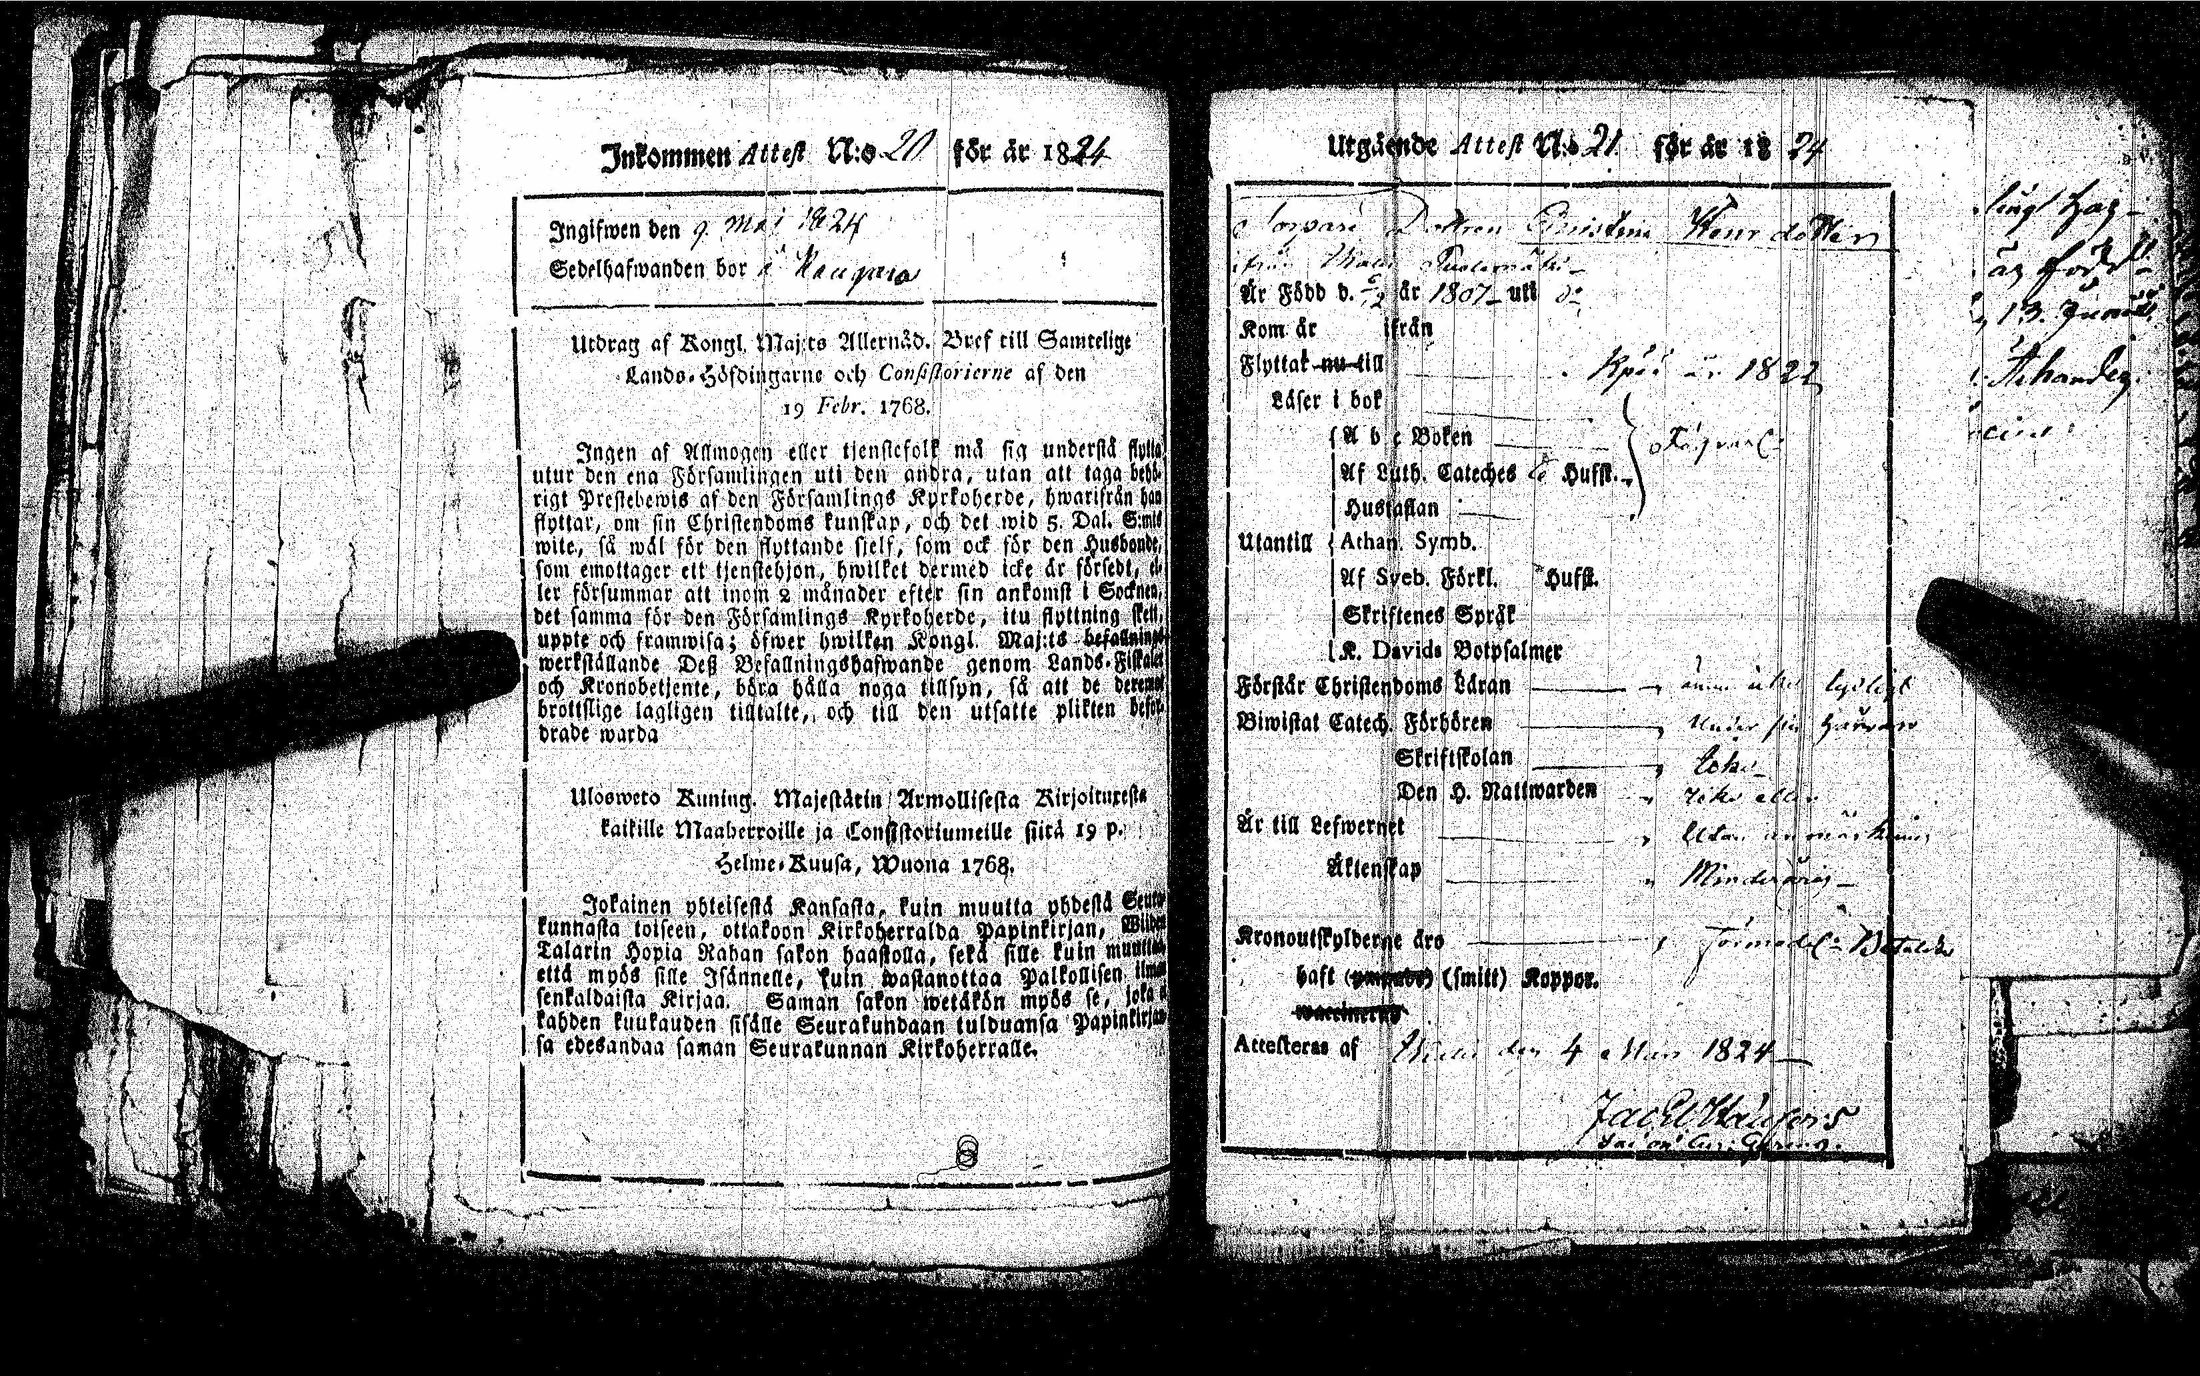 Inkommen Attest N:o 20 för år 1824
Ingifwen den 9 Maj 1824
Sedelhafwanden bor i Kaupia
Utdrag af Kongl. Maj:ts Allernåd. Bref till Samtelige
Lands-Höfdingarne och Consistorierne af den
19 Febr. 1768.
Ingen af Allmogen eller tjenstefolk må sig understå flytta
utur den ena Församlingen uti den andra, utan att taga behö-
rigt Prestebewis af den Församlings Kyrkoherde, hwarifrån han
flyttar, om sin Christendoms kunskap, och det wid 5. Dal. S:mts
wite, så wäl för den flyttande sjelf, som ock för den Husbonde,
som emottager ett tjenstehjon, hwilket dermed icke är försedt, el-
ler försummar att inom 2 månader efter sin ankomst i Socknen,
det samma för den Församlings Kyrkoherde, itu flyttning skett,
uppte och framwisa; öfwer hwilken Kongl. Maj:ts befallnings
werkställande Deß Befallningshafwande genom Lands-Fiskaler
och Kronobetjente, böra hålla noga tillsyn, så att de deremot
brottslige lagligen tilltalte, och till den utsatte plikten befor-
drade warda
Ulosweto Kuning. Majestätin Armollisesta Kirjoituxesta
kaikille Maaherroille ja Consistoriumeille siitä 19 p.
Helme-Kuusa, Wuona 1768.
Jokainen yhteisestä Kansasta, kuin muutta yhdestä Seura-
kunnasta toiseen, ottakoon Kirkoherralda Papinkirjan, Wiiden
Talarin Hopia Rahan sakon haastolla, sekä sille kuin muuttaa
että myös sille Isännelle, kuin wastanottaa Palkollisen ilman
senkaldaista Kirjaa. Saman sakon wetäkön myös se, joka ei
kahden kuukauden sisälle Seurakundaan tulduansa Papinkirjan-
sa edesandaa saman Seurakunnan Kirkoherralle.
Utgående Attest N:o 21 för år 1824
Dottren Christina Henr dotter
ifrån
Är Född d. år 1807 uti d:o
Kom år ifrån
Flyttat nu till år 1822
Läser i bok
A b c Boken
Af Luth. Cateches Hufst.
Hustaflan
Utantill Athan. Symb.
Af Sveb. Förkl. Hufst.
Skriftenes Språk
K. Davids Botpsalmer
Förstår Christendoms Läran
Biwistat Catech. Förhören
Skriftskolan Icke
Den H. Nattwarden Icke eller
Är till Lefwernet Utan anmärkning
Äktenskap Minderårig
Kronoutskylderne äro Betalde
haft (smitt) Koppor.
Attesteras af den 4 1824
13. Junii